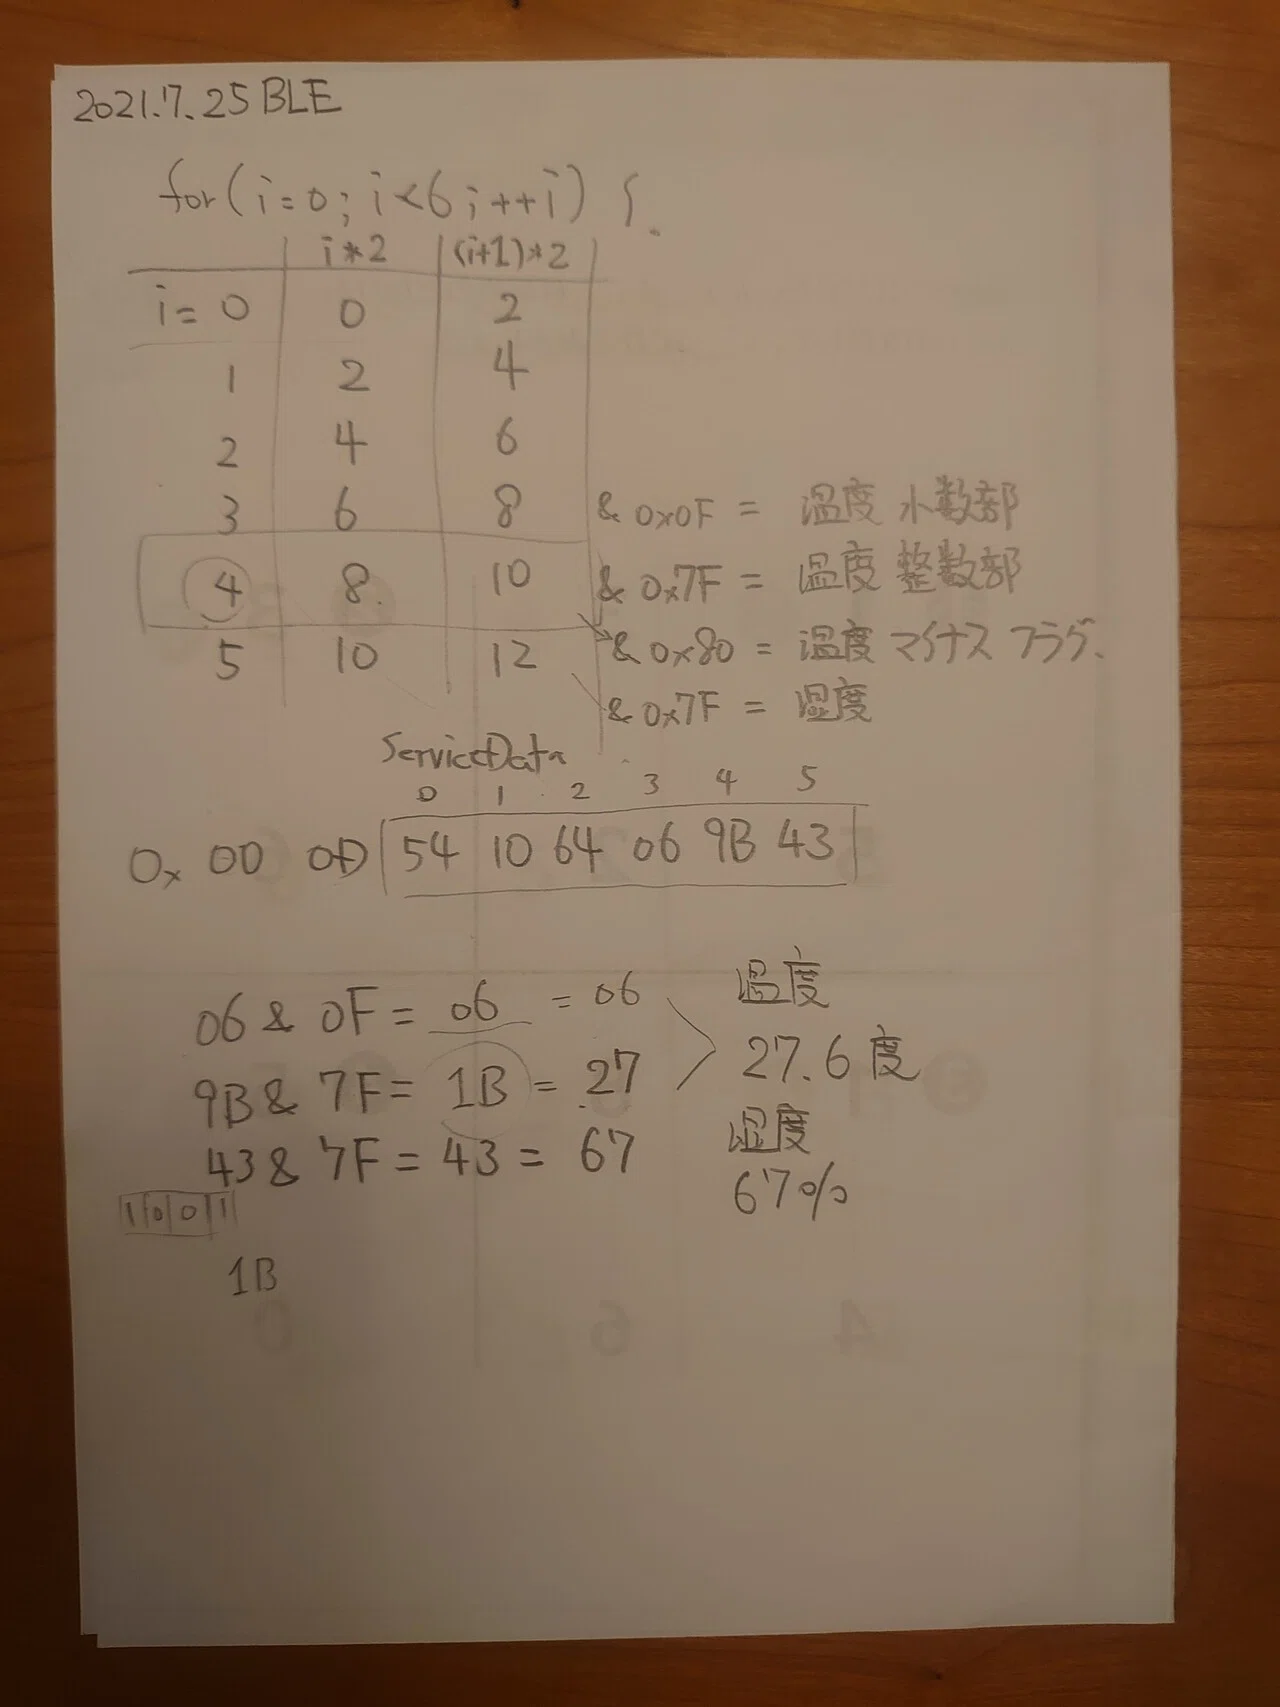 2021.7.25 BLE
for(i=0; i<6; ++i) {
i*2 (i+1)*2
i=0 0 2
1 2 4
2 4 6
3 6 8 & 0x0F = 温度 小数部
4 8 10 & 0x7F = 温度 整数部
& 0x80 = 温度 マイナスフラグ.
5 10 12
& 0x7F = 湿度
ServiceData
0 1 2 3 4 5
0x 00 0D 54 10 64 06 9B 43
06 & 0F = 06 = 06
9B & 7F = 1B = 27
43 & 7F = 43 = 67
温度
27.6度
湿度
67%
1001
1B